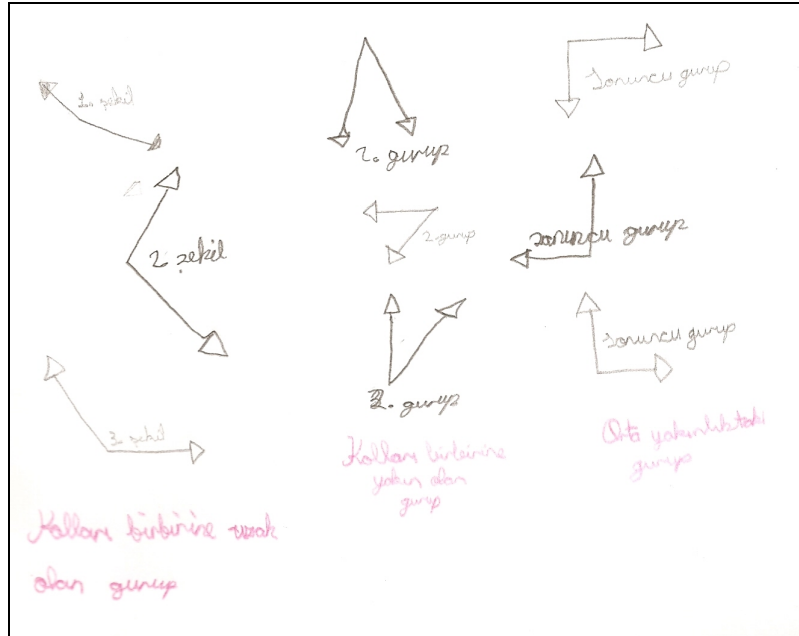 1. şekil
2 şekil
3. şekil
Kolları birbirine uzak
olan gurup
2. gurup
2. gurup
2. gurup
Kolları birbirine
yakın olan
gurup
Sonuncu gurup
sonuncu gurup
Sonuncu gurup
Orta yakınlıktaki
gurup